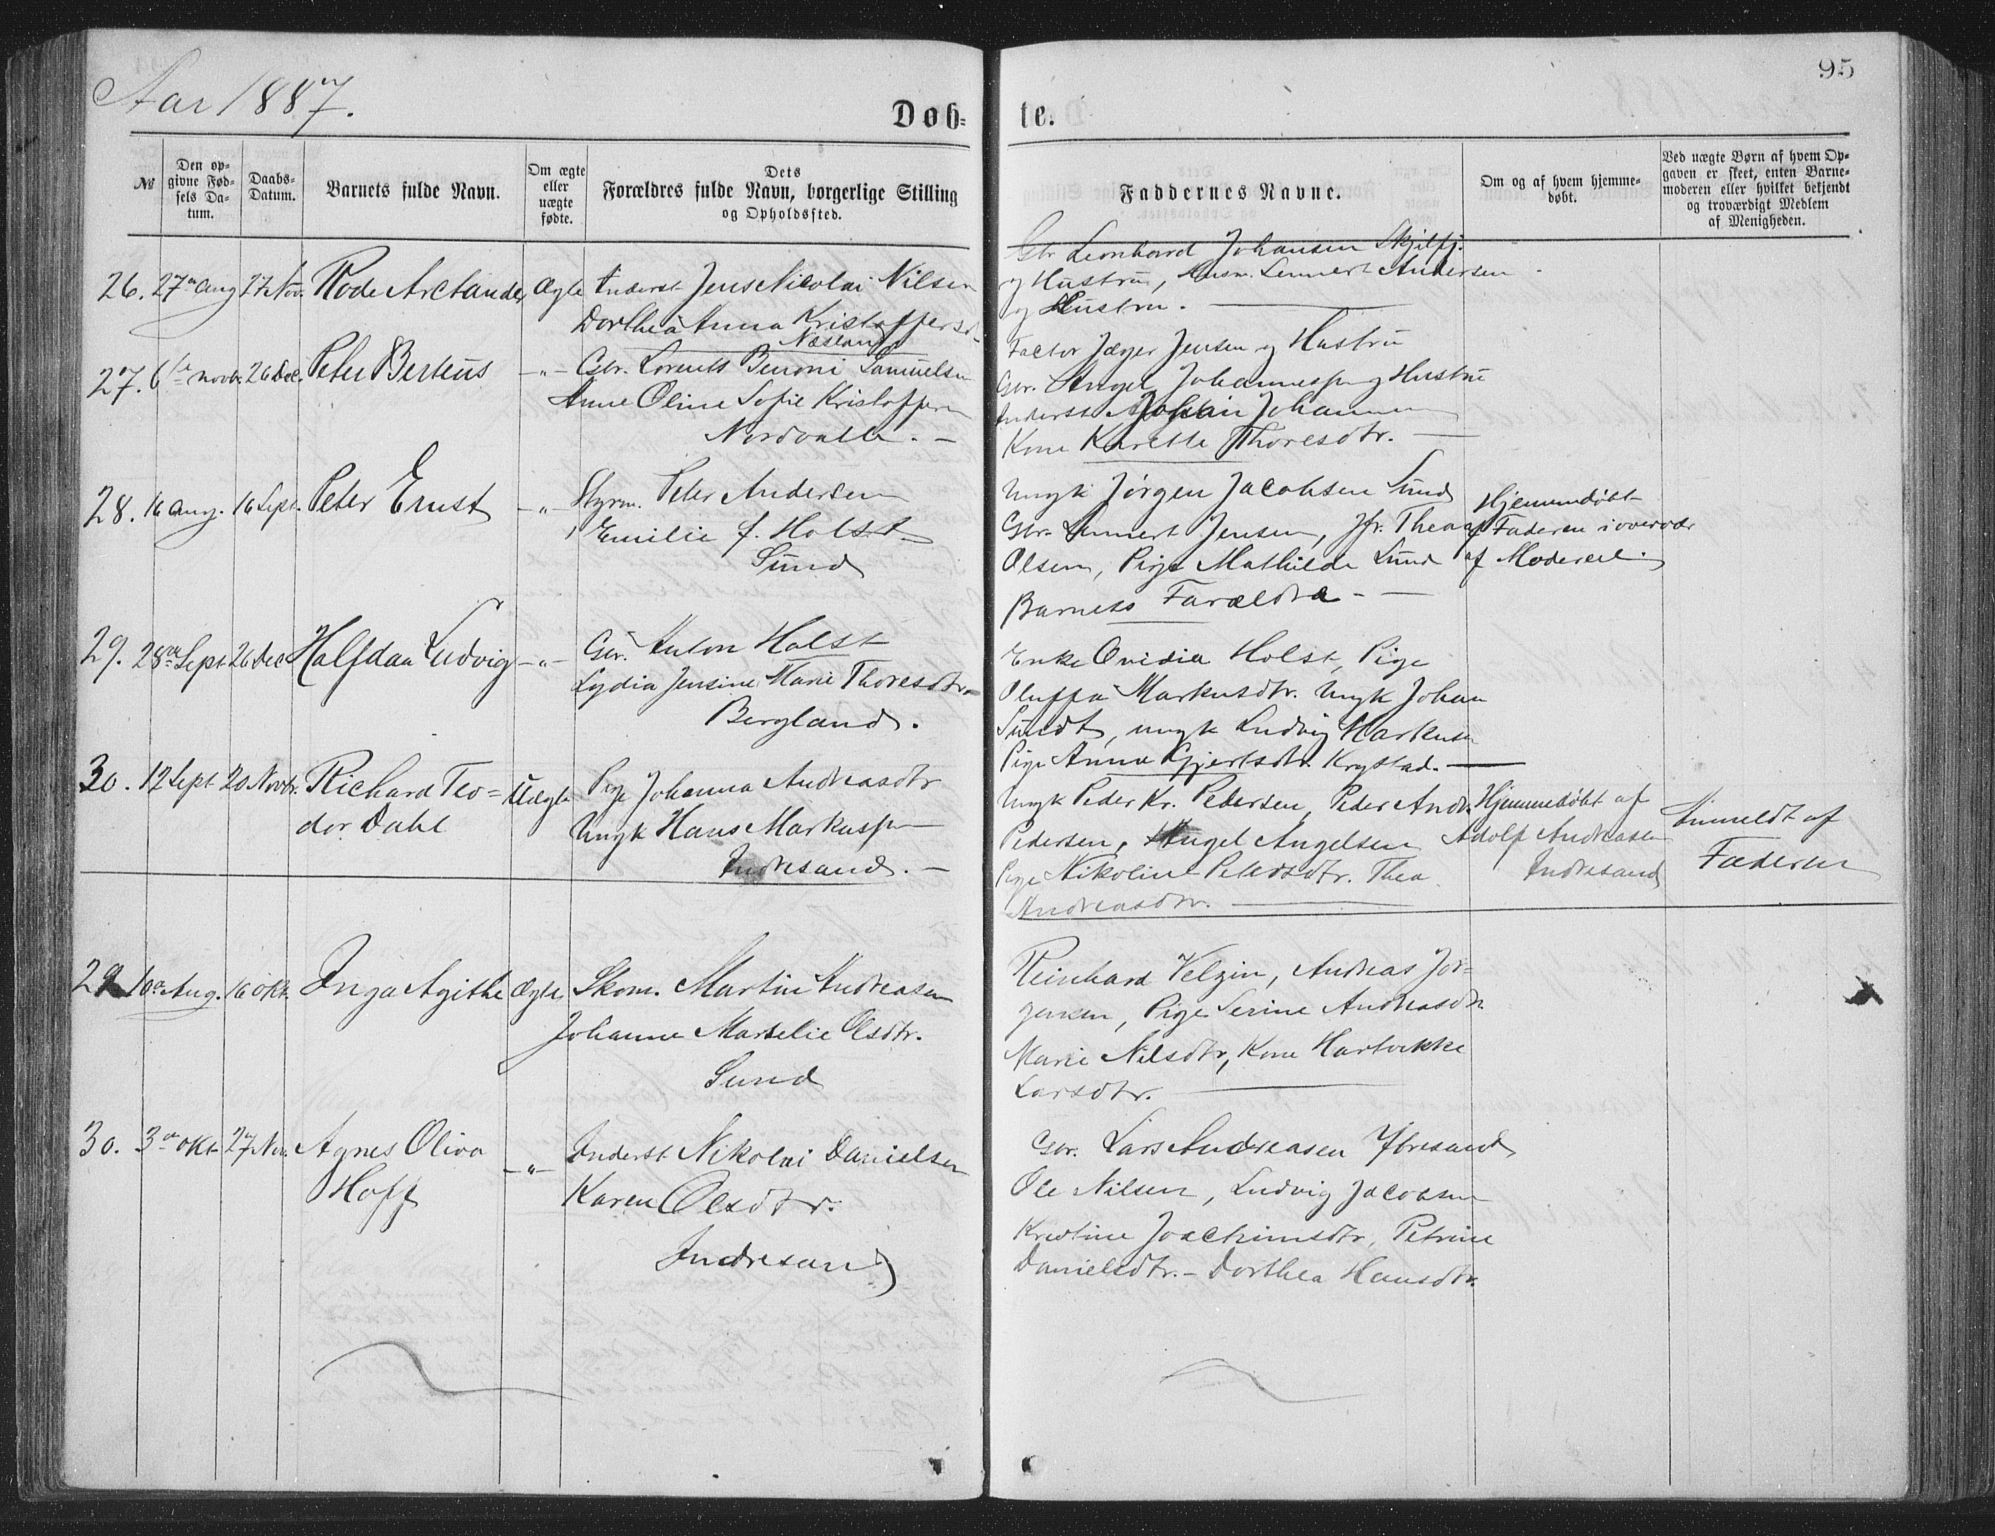 Aar 1887.
95
Døb- te.
№
Den op-
givne Fød-
sels Da-
tum.
Daabs-
Datum.
Barnets fulde Navn.
Om ægte
eller
uægte
fødte.
Dets
Forældres fulde Navn, borgerlige Stilling
og Opholdssted.
Faddernes Navne.
Om og af hvem hjemme-
døbt.
Ved uægte Børn af hvem Op-
gaven er skeet, enten Barne-
moderen eller hvilket bekjendt
og troværdigt Medlem
af Menigheden.
26. 27de Aug 27 Nov. Rode Arctander Ægte Inderst Jens Nicolai Nilsen
Dorthea Anna Kristoffersd.
Næsland
Gbr Leonhard Johansen Skjelfj.
og Hustru, Husm. Lennert Andersen
og Hustru.
27. 6te novb. 26 Dec. Peter Berteus -"- Gbr. Lorents Benoni Samuelsen
Anne Oline Sofie Kristoffersen
Nordvalle.
Factor Jæger Jensen og Hustru
Gbr. Angel Johannessen og Hustru
Inderst Johan Johannsen
Kone Karette Thoresdtr.
28. 16 Aug. 16 Sept. Peter Ernst -"- Styrm. Peter Andersen
Emilie f. Holst
Sund
Ungk Jørgen Jacobsen Sund
Gbr. Lennert Jensen, Jfr. Thea
Olsen, Pige Mathilde Lund
Barnets Forældre
Hjemmedøbt
af Faderen i overvær
af Moderen
29. 28de Sept 26 Dec Halfdan Ludvig -"- Gbr. Anton Holst
Lydia Jensine Marie Thoresdtr.
Bergland.
Enke Ovidia Holst, Pige
Oluffa Markusdtr. Ungk Johan
Sundt, ungk Ludvig Markusen
Pige Anna Gjertsdtr. Krystad.
30. 12 Sept 20 Novbr. Richard Teo-
dor Dahl
Uægte
Pige Johanna Andreasdtr
Ungk Hans Markussen
Indresand.
Ungk Peder Kr. Pedersen, Peder Andr.
Pedersen, Angel Angelsen
Pige Nikoline Petersdtr. Thea
Andreasdtr.
Hjemmedøbt af
Adolf Andreasen
Indresand
Anmeldt af
Faderen
29 10de Aug. 16 Okt. Inga Agithe Ægte Skom. Martin Andreasen
Johanne Marselie Olsdtr.
Sund
Reinhard Velzin, Andreas Jør-
gensen, Pige Serine Andreasdtr
Marie Nilsdtr, Kone Hartvikke
Larsdtr.
30. 3de Okt 27 Nov. Agnes Oliva
Hoff
-"-
Inderst Nikolai Danielsen
Karen Olsdtr.
Indresand
Gbr. Lars Andreasen Ytresand
Ole Nilsen, Ludvig Jacobsen
Kristine Joachimsdtr, Petrine
Danielsdtr. - Dorthea Hansdtr.